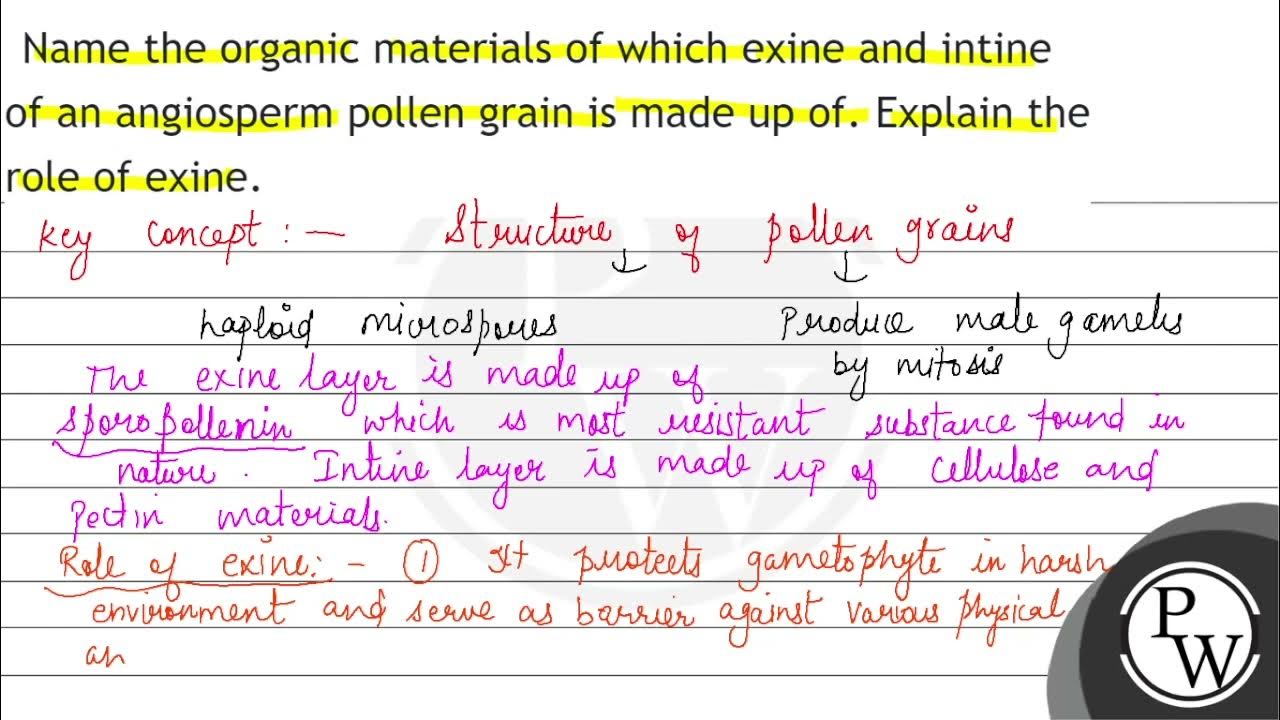 Name the organic materials of which exine and intine
of an angiosperm pollen grain is made up of. Explain the
role of exine.
Key concept :- Structure of pollen grains
haploid microspores Produce male gametes
by mitosis
The exine layer is made up of
sporopollenin which is most resistant substance found in
nature. Intine layer is made up of cellulose and
pectin materials.
Role of exine:- ① It protects gametophyte in harsh
environment and serve as barrier against various physical
an
PW